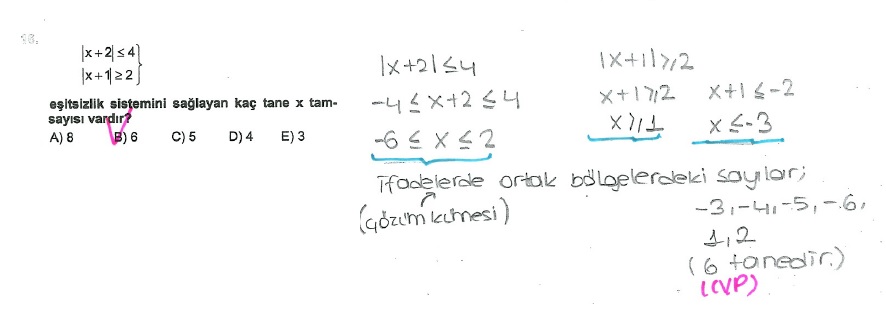 18.
|x+2| ≤ 4
|x+1| ≥ 2
eşitsizlik sistemini sağlayan kaç tane x tam-
sayısı vardır?
A) 8 B) 6 C) 5 D) 4 E) 3
|x+2| ≤ 4
-4 ≤ x+2 ≤ 4
-6 ≤ x ≤ 2
|x+1| ≥ 2
x+1 ≥ 2 x+1 ≤ -2
x ≥ 1 x ≤ -3
ifadelerde ortak bölgelerdeki sayılar;
(çözüm kümesi)
-3, -4, -5, -6,
1, 2
(6 tanedir.)